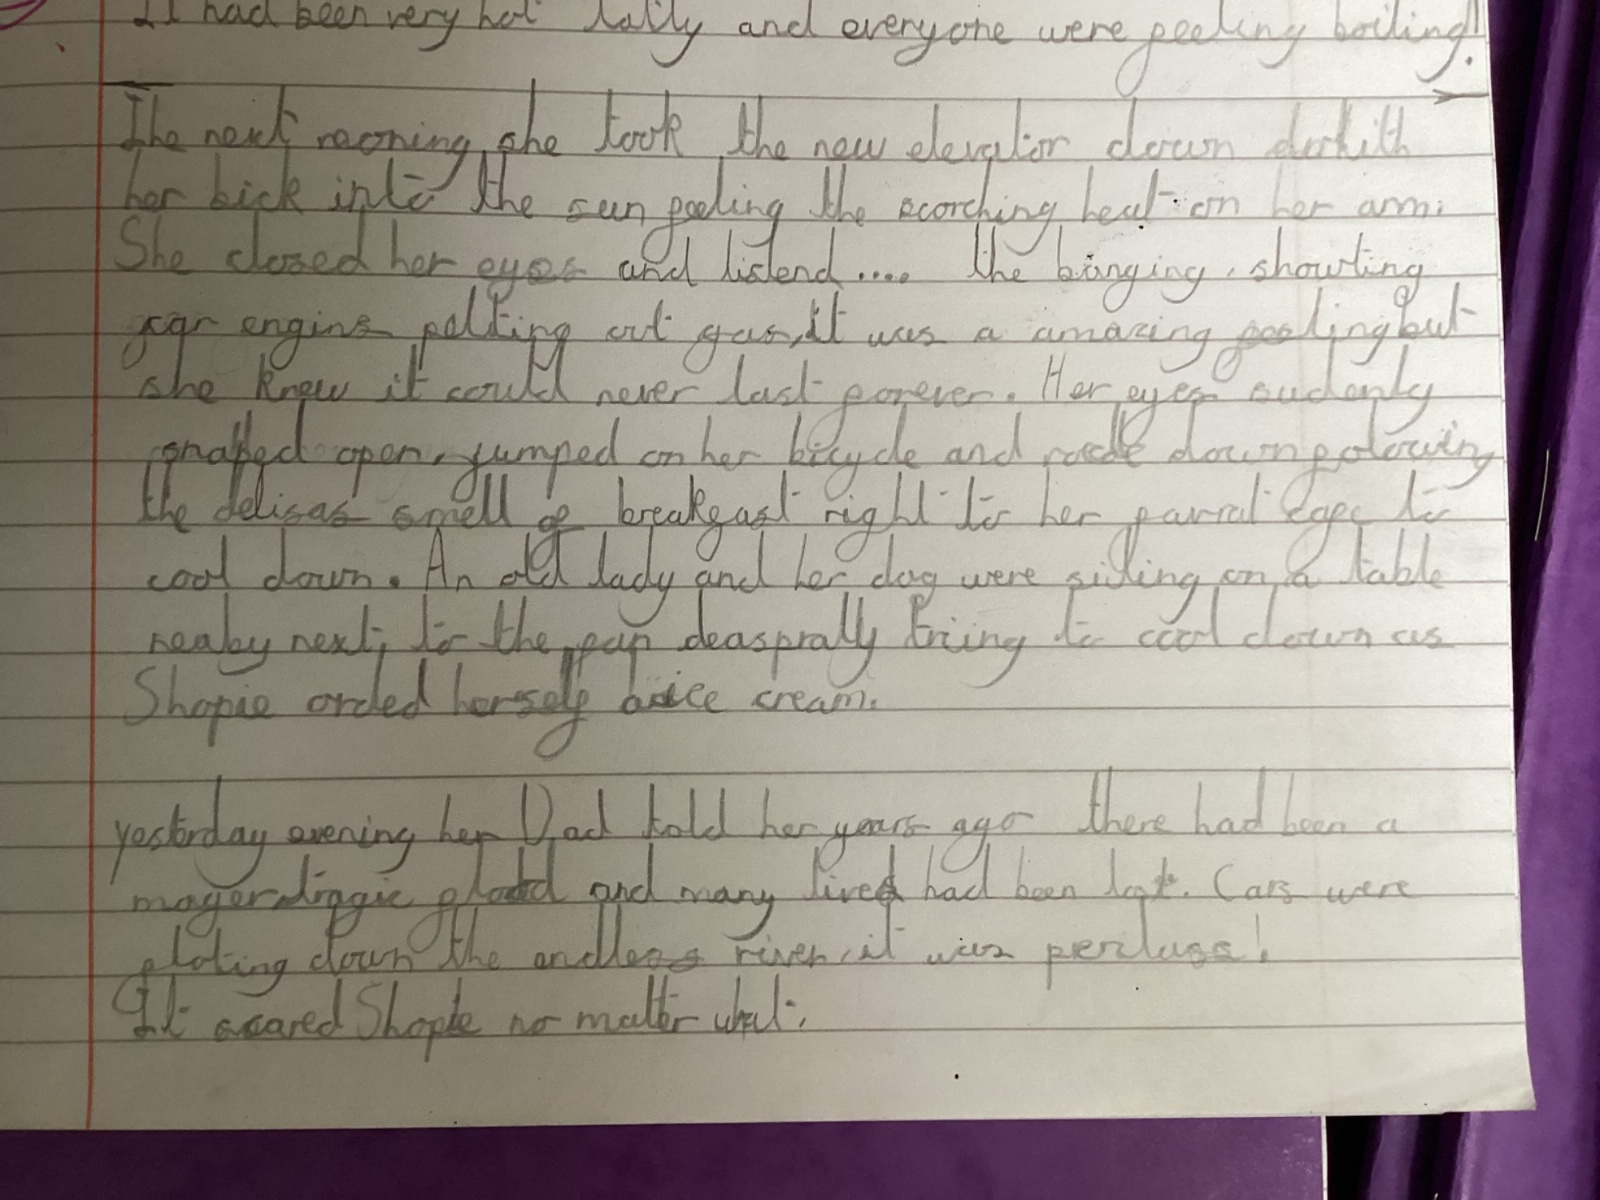 It had been very hot latly and everyone were feeling boiling!
The next moring she took the new elevator down
her bick into the sun feeling the scorching heat on her arm.
She closed her eyes and listend.... the banging, showting
car engins pelting out gas, it was a amazing feeling but
she knew it could never last forever. Her eyes sudenly
snapped open, jumped on her bicycle and rode down folowing
the delisas smell of breakfast right to her favrat cafe to
cool down. An old lady and her dog were sitting on a table
neaby next to the fan deasprally triing to cool down as
Shopie orded herself ice cream.
yesterday evening her Dad told her years ago there had been a
mager tragic flood and many lives had been lost. Cars were
floting down the endless river, it was periluss!
It scared Shopie no matter what.